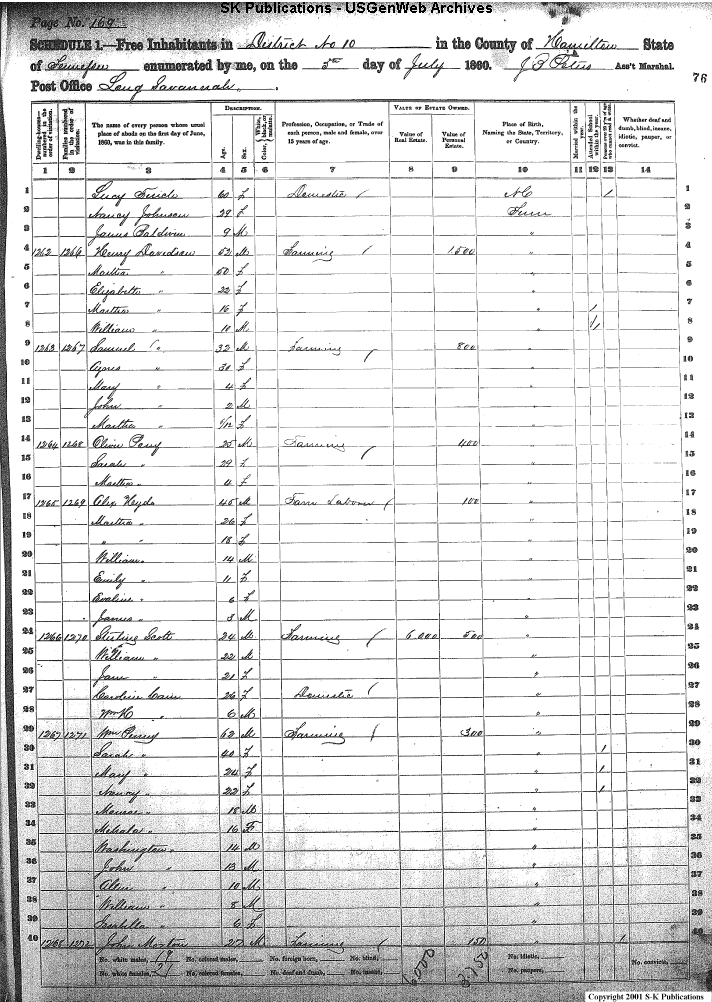 SK Publications - USGenWeb Archives
Page No. 169
SCHEDULE 1.—Free Inhabitants in District No 10 in the County of Hamilton State
of Tennessee enumerated by me, on the 5th day of July 1860. Ass't Marshal.
76
Post Office Long Savannah
DESCRIPTION. VALUE OF ESTATE OWNED.
Dwelling-houses—numbered in the order of visitation. Families numbered in the order of visitation. The name of every person whose usual place of abode on the first day of June, 1860, was in this family. Age. Sex. Color, White, black, or mulatto. Profession, Occupation, or Trade of each person, male and female, over 15 years of age. Value of Real Estate. Value of Personal Estate. Place of Birth, Naming the State, Territory, or Country. Married within the year. Attended School within the year. Persons over 20 y'rs of age who cannot read & write. Whether deaf and dumb, blind, insane, idiotic, pauper, or convict.
1 2 3 4 5 6 7 8 9 10 11 12 13 14
1 Lucy 60 f Domestic NC / 1
2 Nancy Johnson 29 f Tenn 2
3 James Baldwin 9 M " 3
4 1262 1266 Henry Davidson 52 M Farming 1500 " 4
5 Martha " 50 f " 5
6 Elizabeth " 22 f " 6
7 Martha " 16 f " / 7
8 William " 10 M " / 8
9 1263 1267 Samuel " 32 M Farming 800 " 9
10 " 30 f " 10
11 Mary " 4 f " 11
12 John " 2 M " 12
13 Martha " 1/12 f " 13
14 1264 1268 25 M Farming 400 " 14
15 Sarah " 29 f " 15
16 Martha " 4 f " 16
17 1265 1269 Alex 45 M Farm Laborer 100 " 17
18 Martha " 26 f " 18
19 " " 18 f " 19
20 William " 14 M " 20
21 Emily " 11 f " 21
22 Evaline " 6 f " 22
23 James " 3 M " 23
24 1266 1270 Sterling Scott 24 M Farming 6,000 500 " 24
25 William " 22 M " 25
26 Jane " 21 f " 26
27 Caroline Cain 26 f Domestic " 27
28 Wm H " 6 M " 28
29 1267 1271 Wm 62 M Farming 300 " 29
30 Sarah " 40 f " / 30
31 Mary " 24 f " / 31
32 Nancy " 22 f " / 32
33 Monroe " 18 M " 33
34 " 16 F " 34
35 Washington " 14 M " 35
36 John " 13 M " 36
37 " 10 M " 37
38 William " 8 M " 38
39 " 6 f " 39
40 1268 1272 John 27 M Farming 150 " 40
No. white males, 19 No. colored males, No. foreign born, No. blind, 6000 No. idiotic, No. convicts,
No. white females, 21 No. colored females, No. deaf and dumb, No. insane, No. paupers,
Copyright 2001 S-K Publications